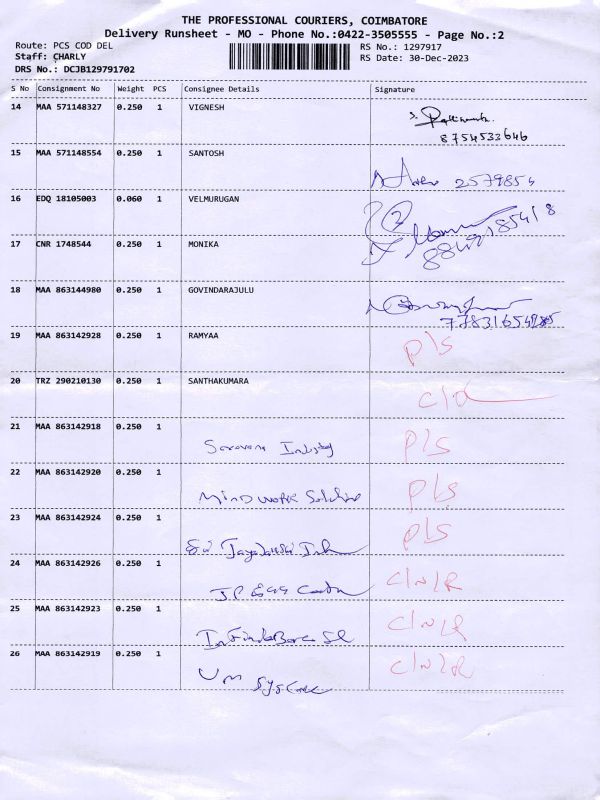 THE PROFESSIONAL COURIERS, COIMBATORE
Delivery Runsheet - MO - Phone No.:0422-3505555 - Page No.:2
Route: PCS COD DEL
RS No.: 1297917
Staff: CHARLY
RS Date: 30-Dec-2023
DRS No.: DCJB129791702
S No Consignment No Weight PCS Consignee Details Signature
14 MAA 571148327 0.250 1 VIGNESH
8754533646
15 MAA 571148554 0.250 1 SANTOSH
2579854
16 EDQ 18105003 0.060 1 VELMURUGAN
17 CNR 1748544 0.250 1 MONIKA
18 MAA 863144980 0.250 1 GOVINDARAJULU
19 MAA 863142928 0.250 1 RAMYAA
P/S
20 TRZ 290210130 0.250 1 SANTHAKUMARA
21 MAA 863142918 0.250 1
P/S
22 MAA 863142920 0.250 1
Mindwork P/S
23 MAA 863142924 0.250 1
Sri P/S
24 MAA 863142926 0.250 1
C/N/R
25 MAA 863142923 0.250 1
C/N/R
26 MAA 863142919 0.250 1
C/N/R
UM